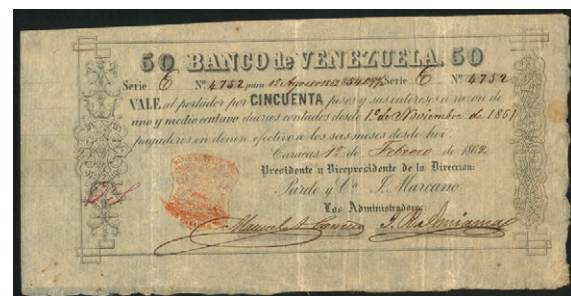 50 BANCO de VENEZUELA. 50
Serie C Nº 4752 para 1º Agosto 1862 Serie C Nº 4752
VALE al portador por CINCUENTA pesos y sus intereses á razon de
uno y medio centavo diarios contados desde 1º de Noviembre de 1861
pagaderos en dinero efectivo a los seis meses desde hoi.
Caracas 1º de Febrero de 1862.
Presidente y Vicepresidente de la Direccion:
Pardo y Cª J. Marcano.
Los Administradores:
Manuel A.